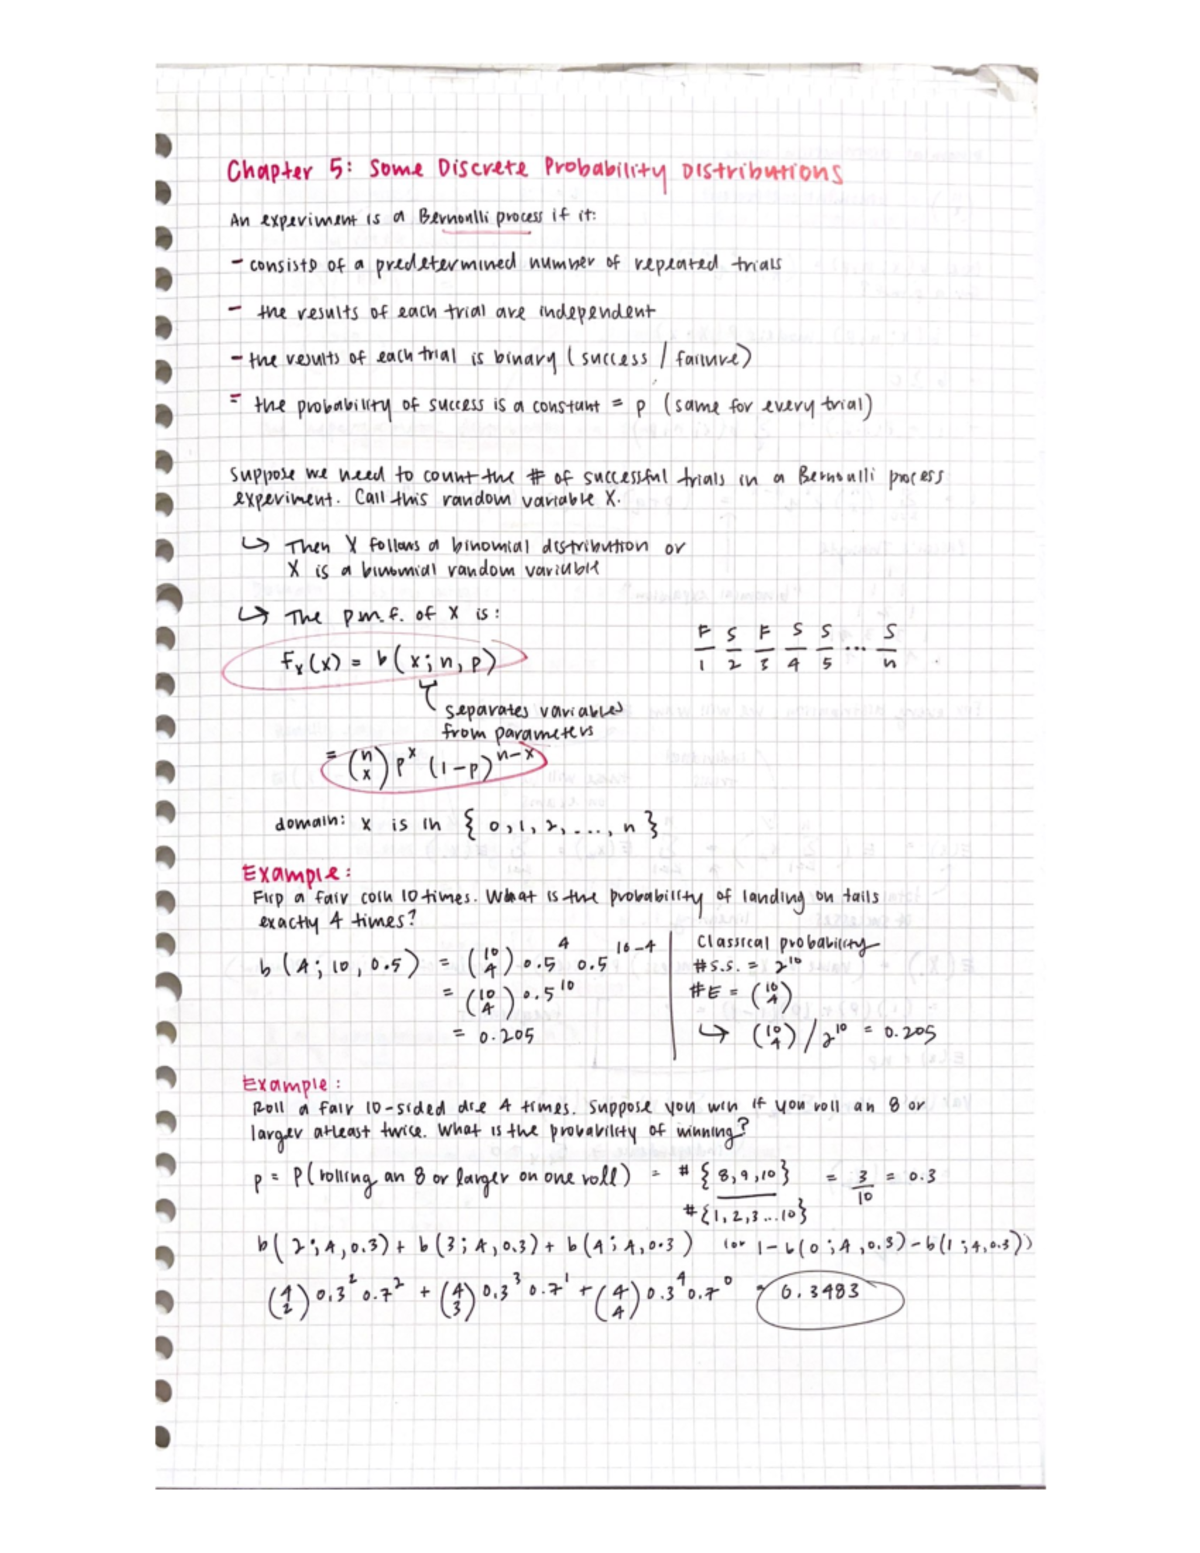 Chapter 5: Some Discrete Probability Distributions
An experiment is a Bernoulli process if it:
- consists of a predetermined number of repeated trials
- the results of each trial are independent
- the results of each trial is binary (success / failure)
- the probability of success is a constant = p (same for every trial)
Suppose we need to count the # of successful trials in a Bernoulli process
experiment. Call this random variable X.
↳ Then X follows a binomial distribution or
X is a binomial random variable
↳ The p.m.f. of X is:
F S F S S ... S
1 2 3 4 5 n
fx(x) = b(x; n, p)
separates variables
from parameters
= (n x) p^x (1-p)^n-x
domain: x is in {0,1,2,...,n}
Example:
Flip a fair coin 10 times. What is the probability of landing on tails
exactly 4 times?
b(4; 10, 0.5) = (10 4) 0.5^4 0.5^10-4
= (10 4) 0.5^10
= 0.205
Classical probability
#S.S. = 2^10
#E = (10 4)
↳ (10 4) / 2^10 = 0.205
Example:
Roll a fair 10-sided die 4 times. Suppose you win if you roll an 8 or
larger atleast twice. What is the probability of winning?
p = P(rolling an 8 or larger on one roll) = #{8,9,10} / #{1,2,3...10} = 3/10 = 0.3
b(2; 4, 0.3) + b(3; 4, 0.3) + b(4; 4, 0.3) (or 1-b(0; 4, 0.3)-b(1; 4, 0.3))
(4 2) 0.3^2 0.7^2 + (4 3) 0.3^3 0.7^1 + (4 4) 0.3^4 0.7^0 = 0.3483